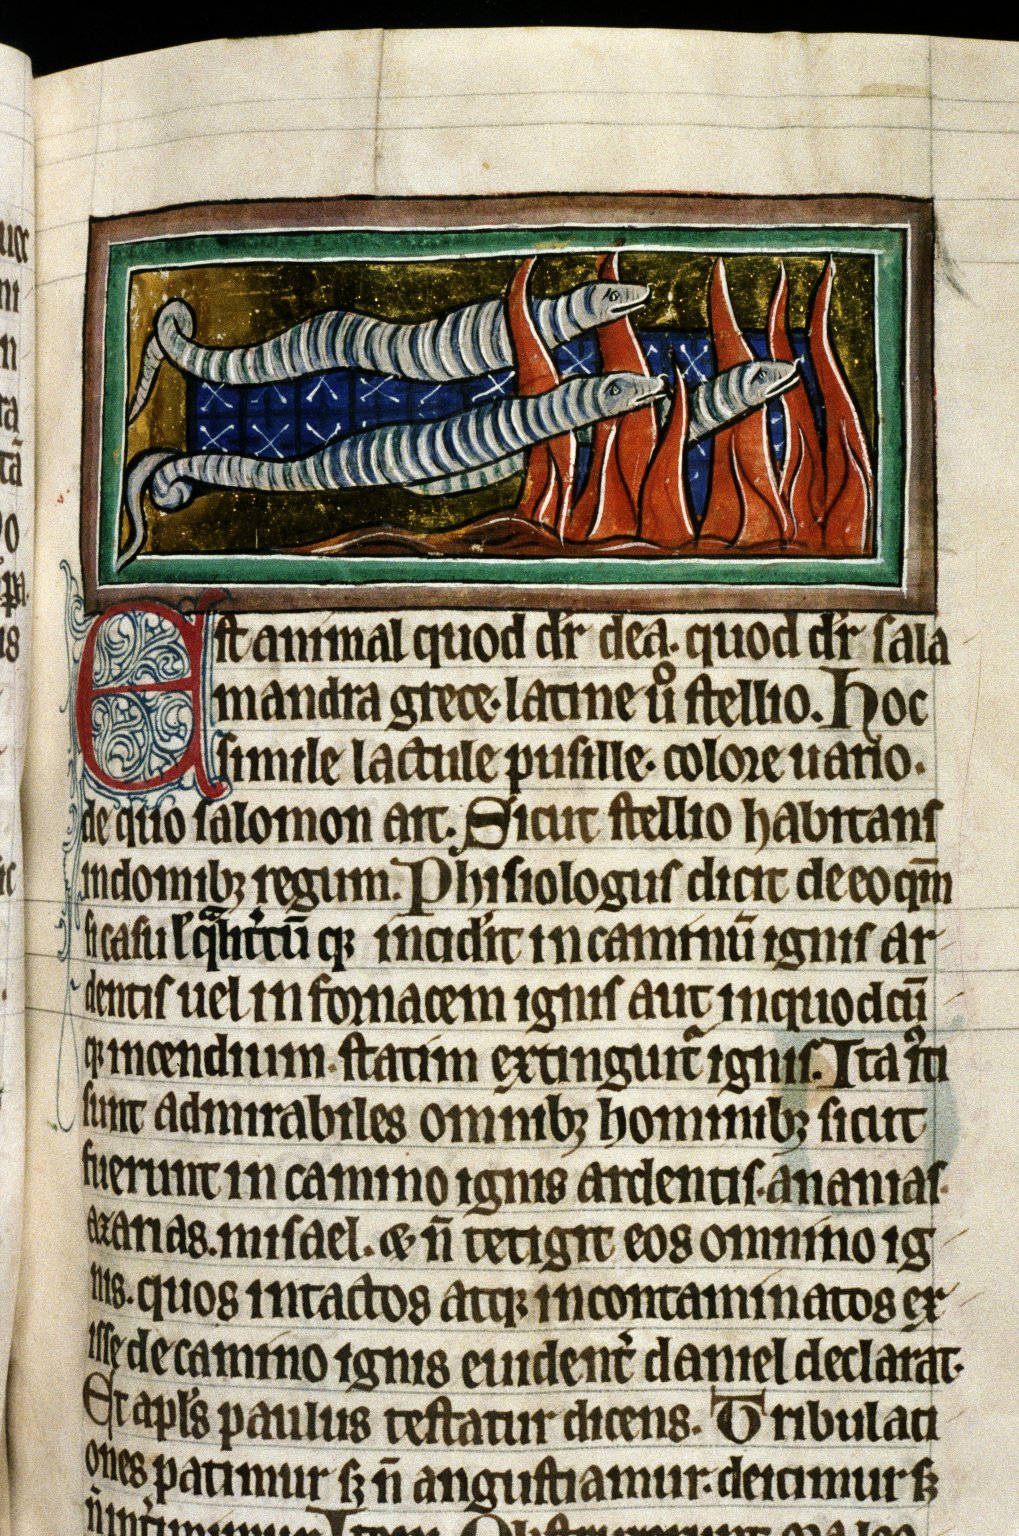 Est animal quod dr̄ dea. quod dr̄ sala
mandra grece. latine uͦ stellio. Hoc
simile lactule pusille. colore uario.
de quo salomon ait. Sicut stellio habitans
in domibꝫ regum. Phisiologus dicit de eo qm̄
si casu incid'it in caminū ignis ar
dentis uel in fornacem ignis aut in quodcū
qꝫ incendium. statim extinguit᷑ ignis. Ita iͣsti
sunt admirabiles omnibꝫ hominibꝫ sicut
fuerunt in camino ignis ardentis. ananias.
azarias. misael. & n̄ tetigit eos omnino ig
nis. quos intactos atqꝫ incontaminatos ex
isse de camino ignis euident᷑ daniel declarat.
Et apl's paulus testatur dicens. Tribulati
ones patimur sꝫ n̄ angustiamur. deicimur sꝫ